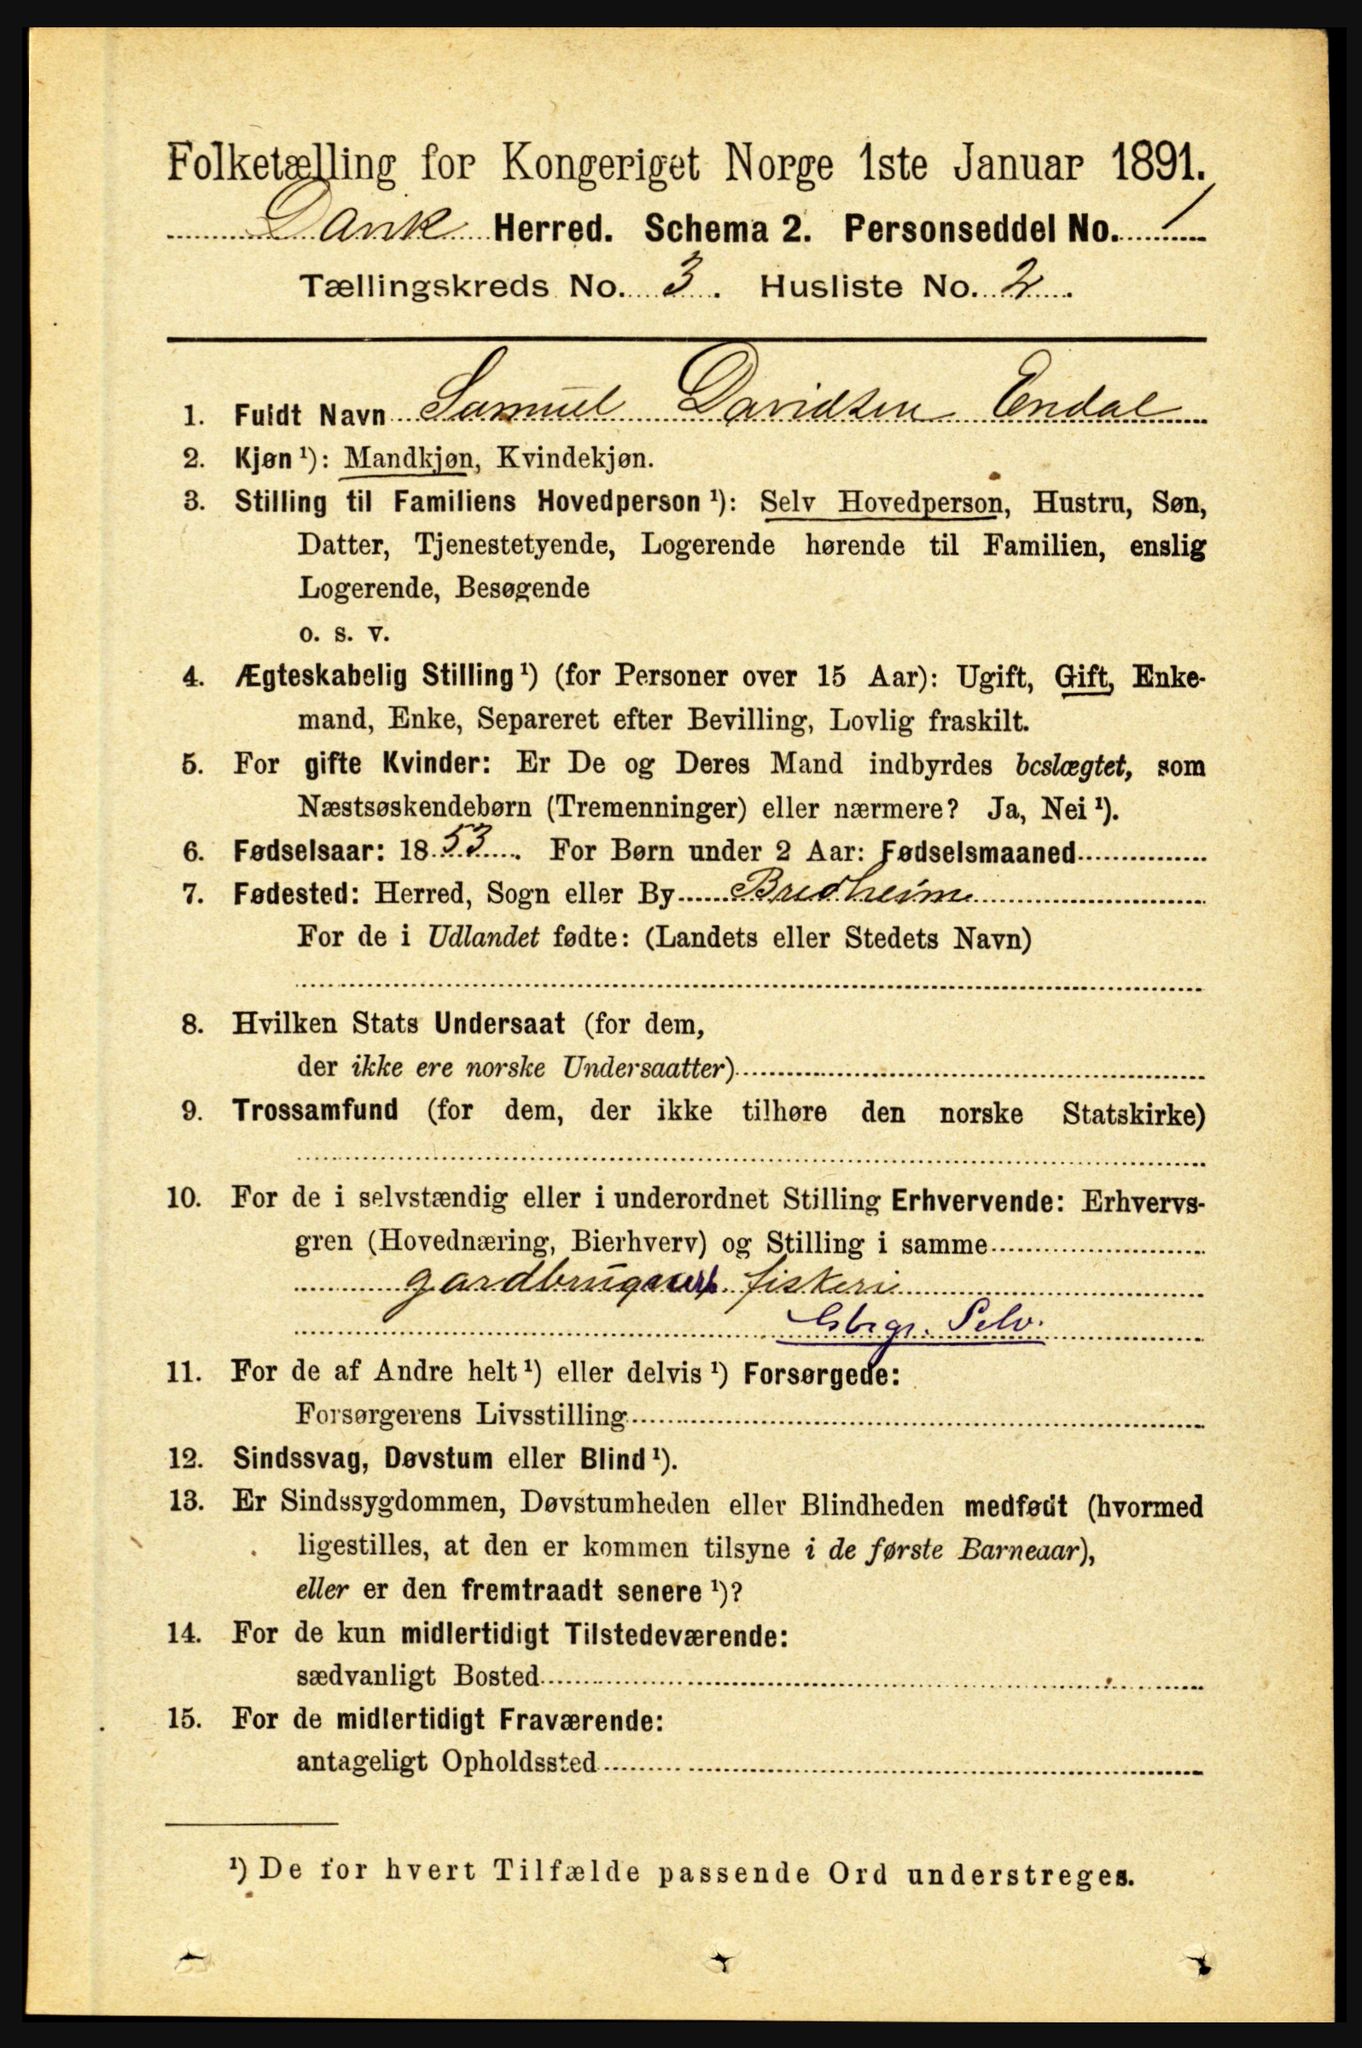 Folketælling for Kongeriget Norge 1ste Januar 1891.
Davik Herred. Schema 2. Personseddel No. 1
Tællingskreds No. 3. Husliste No. 2.
1. Fuldt Navn Samuel Davidsen Endal
2. Kjøn¹): Mandkjøn, Kvindekjøn.
3. Stilling til Familiens Hovedperson¹): Selv Hovedperson, Hustru, Søn,
Datter, Tjenestetyende, Logerende hørende til Familien, enslig
Logerende, Besøgende
o. s. v.
4. Ægteskabelig Stilling¹) (for Personer over 15 Aar): Ugift, Gift, Enke-
mand, Enke, Separeret efter Bevilling, Lovlig fraskilt.
5. For gifte Kvinder: Er De og Deres Mand indbyrdes beslægtet, som
Næstsøskendebørn (Tremenninger) eller nærmere? Ja, Nei¹).
6. Fødselsaar: 1853. For Børn under 2 Aar: Fødselsmaaned
7. Fødested: Herred, Sogn eller By Bredheim
For de i Udlandet fødte: (Landets eller Stedets Navn)
8. Hvilken Stats Undersaat (for dem,
der ikke ere norske Undersaatter)
9. Trossamfund (for dem, der ikke tilhøre den norske Statskirke)
10. For de i selvstændig eller i underordnet Stilling Erhvervende: Erhvervs-
gren (Hovednæring, Bierhverv) og Stilling i samme
fiskeri
Gbrgr. Selv.
11. For de af Andre helt¹) eller delvis¹) Forsørgede:
Forsørgerens Livsstilling
12. Sindssvag, Døvstum eller Blind¹).
13. Er Sindssygdommen, Døvstumheden eller Blindheden medfødt (hvormed
ligestilles, at den er kommen tilsyne i de første Barneaar),
eller er den fremtraadt senere¹)?
14. For de kun midlertidigt Tilstedeværende:
sædvanligt Bosted
15. For de midlertidigt Fraværende:
antageligt Opholdssted
¹) De for hvert Tilfælde passende Ord understreges.